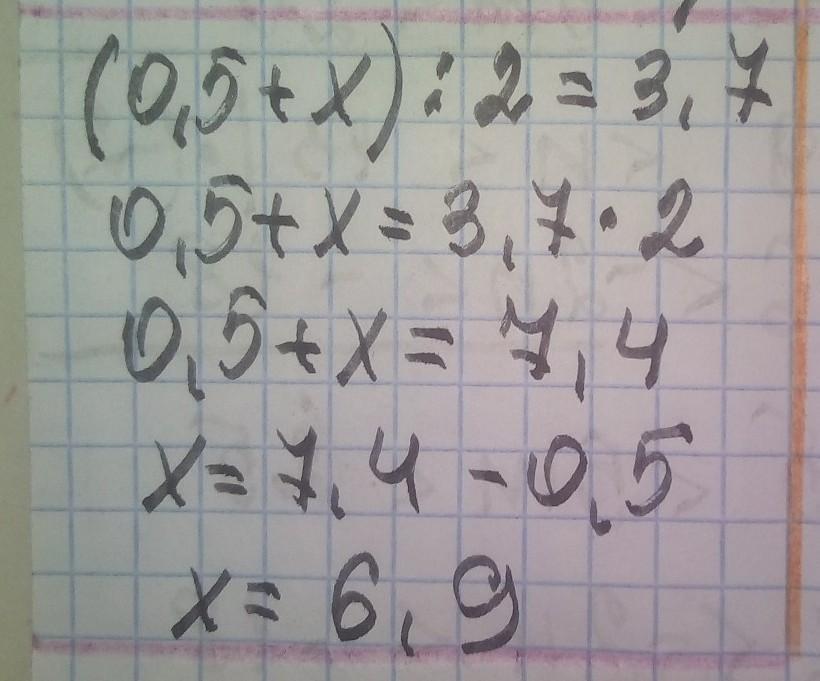 (0,5+x):2=3,7
0,5+x=3,7·2
0,5+x=7,4
x=7,4-0,5
x=6,9